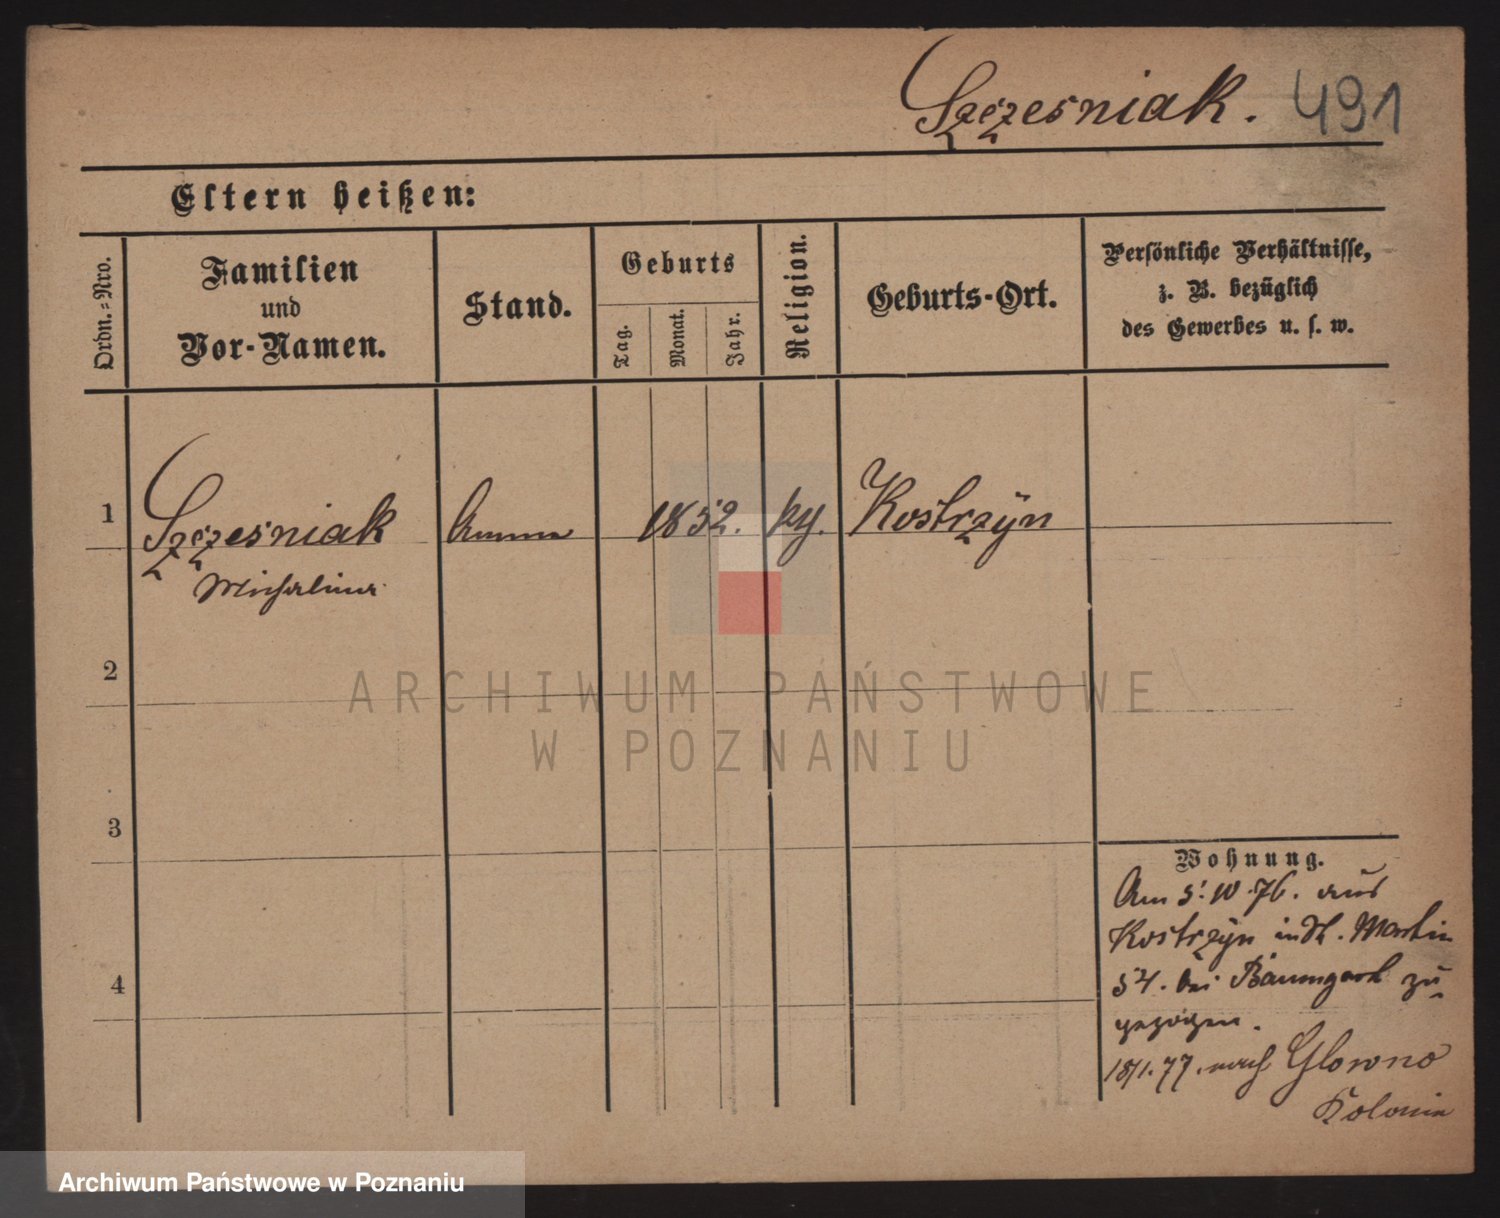 Szczesniak. 491
Eltern heißen:
Ordn.-Nro.
Familien
und
Vor-Namen.
Stand.
Geburts
Tag.
Monat.
Jahr.
Religion.
Geburts-Ort.
Persönliche Verhältnisse,
z. B. bezüglich
des Gewerbes u. s. w.
1
Szczesniak Amme 1852. Kostrzyn
Michalina
2
3
4
Wohnung.
Am 5.10.76. aus
Kostrzyn in St. Martin
54. bei zu
gezogen.
18/1.77. nach Glowno
Kolonie
ARCHIWUM PAŃSTWOWE
W POZNANIU
Archiwum Państwowe w Poznaniu